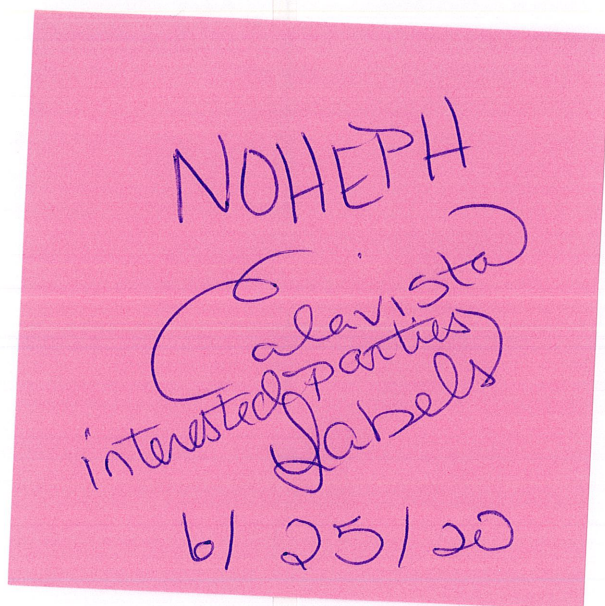 NOHEPH
Calavista
interested parties
Labels
6/25/20